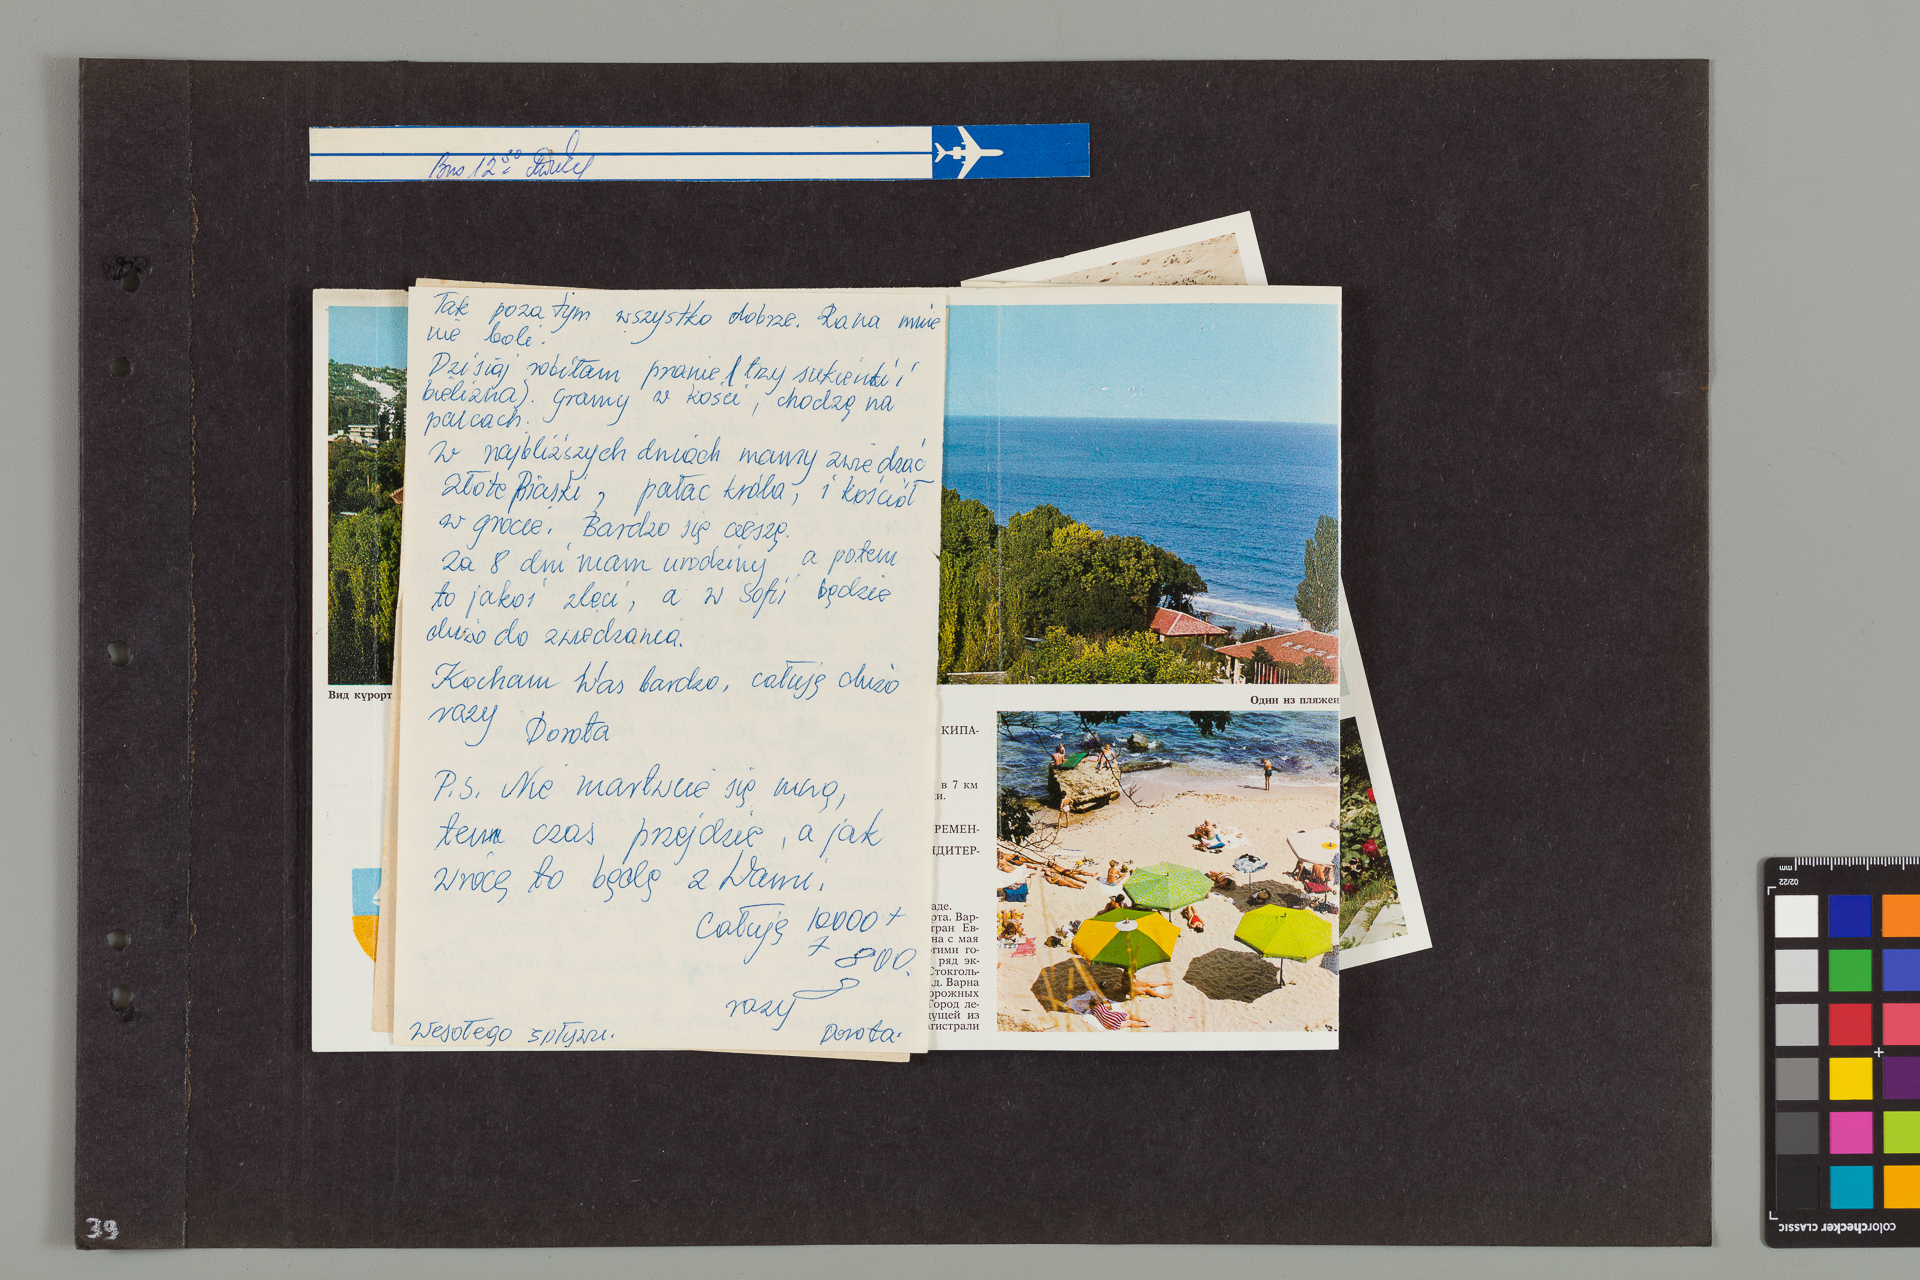 Bus 12³⁰
Tak poza tym wszystko dobrze. Rana mnie
nie boli.
Dzisiaj robiłam pranie (trzy sukienki i
bielizna). Gramy w kości, chodzę na
palcach.
W najbliższych dniach mamy zwiedzać
Złote Piaski, pałac króla, i kościół
w grocie. Bardzo się cieszę.
Za 8 dni mam urodziny a potem
to jakoś zleci, a w Sofii będzie
dużo do zwiedzania.
Kocham Was bardzo, całuję dużo
razy
Dorota
P.S. Nie martwcie się mną,
ten czas przejdzie, a jak
wrócę to będę z Wami.
Całuję 10000 +
+ 800.
razy
Wesołego spływu.
Dorota.
Вид курорт
Один из пляжей
КИПА-
в 7 км
и.
РЕМЕН-
НДИТЕР-
аде.
рта. Вар-
тран Ев-
на с мая
огими го-
ряд эк-
Стокголь-
.д. Варна
орожных
Город ле-
дущей из
агистрали
39
mm
02/22
colorchecker CLASSIC